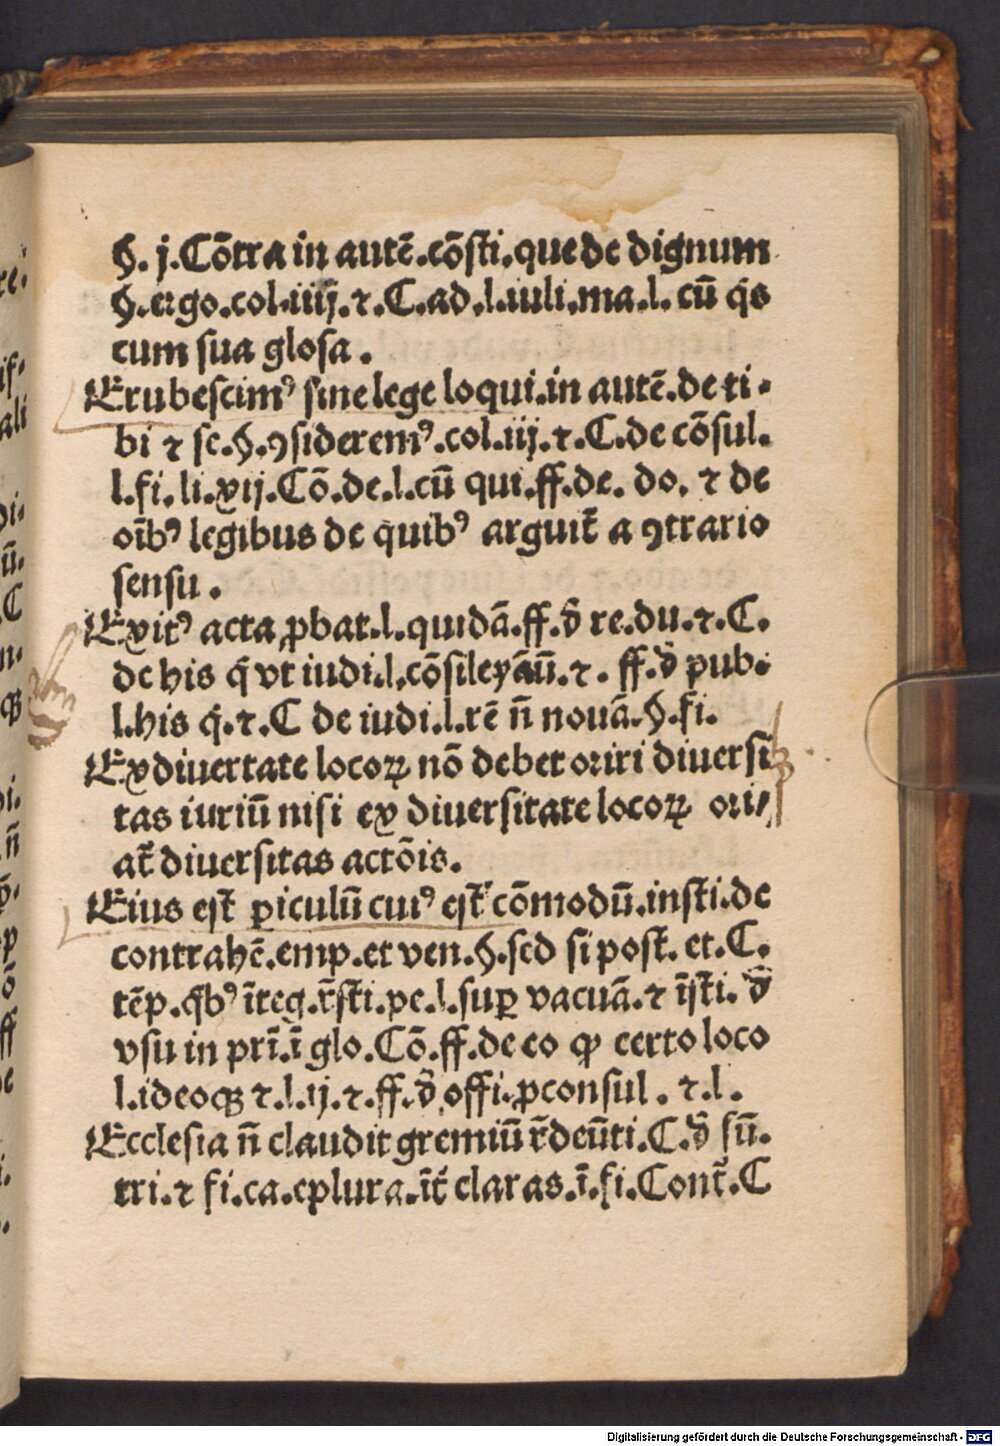 §. j. Cōtra in autē.cōsti.que de dignum
§.ergo.col.iiij.⁊.C.ad.l.iuli.ma.l. cū q̄s
cum sua glosa.
Erubescimꝰ sine lege loqui.in autē.de ti-
bi ⁊ sc.§.ꝯsideremꝰ.col.iij.⁊.C.de cōsul.
l.fi.li.xij.Cō.de.l.cū qui.ff.de. do. ⁊ de
oībꝰ legibus de quibꝰ arguit̄ a ꝯtrario
sensu.
Exitꝰ acta ꝓbat.l.quidā.ff.d̄ re.du.⁊.C.
de his q̄ vt iudi.l.cōsileyāū.⁊. ff.d̄ pub.
l.his q̄.⁊.C de iudi.l.rē n̄ nouā.§.fi.
Ex diuertate locoꝝ nō debet oriri diuersi
tas iuriū nisi ex diuersitate locoꝝ ori/
at̄ diuersitas actōis.
Eius est̄ ꝑiculū cuiꝰ est̄ cōmodū.insti.de
contrahē.emp.et ven.§.sed si post̄. et.C.
tēp.q̄bꝰ īteg.r̄sti.pe.l.suꝑ vacuā.⁊ īsti. d̄
vsu in prī.ī glo.Cō.ff.de eo ꝙ certo loco
l.ideoqꝫ ⁊.l.ij.⁊.ff.d̄.offi.ꝓconsul. ⁊.l.
Ecclesia n̄ claudit gremiū r̄deūti.C.d̄ sū.
tri.⁊ fi.ca.eplura.īt̄ claras.ī.fi.Cont̄.C
Digitalisierung gefördert durch die Deutsche Forschungsgemeinschaft - DFG